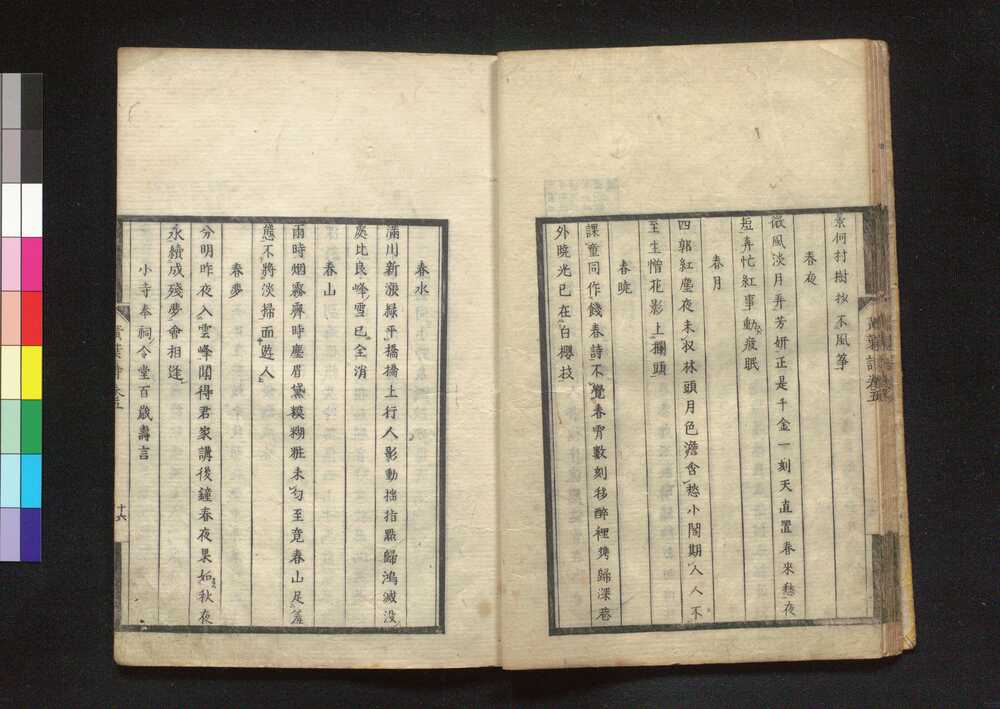 景何村樹抄不風箏
春夜
微風淡月弄芳妍正是千金一刻天直置春來愁夜
短弄忙紅事動疲眠
春月
四郭紅塵夜未収林頭月色澹含愁小閤期人人不
至生憎花影上欄頭
春曉
課童同作餞春詩不覺春宵數刻移醉裡携歸深巷
外曉光已在白櫻枝
黃葉詩卷五
春水
滿川新漲綠平橋橋上行人影動揺指點歸鴻滅没
處比良峰雪已全消
春山
雨時烟霧霽時塵眉黛糢糊粧未匀至竟春山足羞
態不將淡掃面遊人
春夢
分明昨夜入雲峰聞得君家講後鐘春夜果如秋夜
永續成殘夢會相逢
小寺奉祠令堂百歲壽言
十六